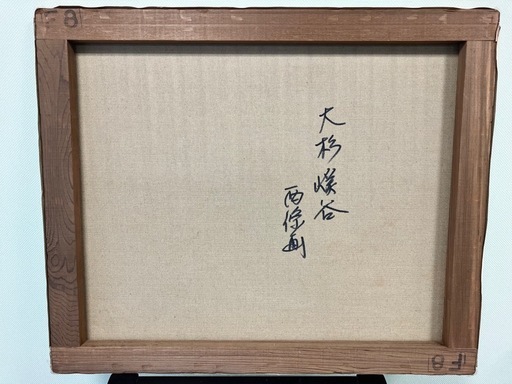 F8
大杉峡谷
西條画
F8